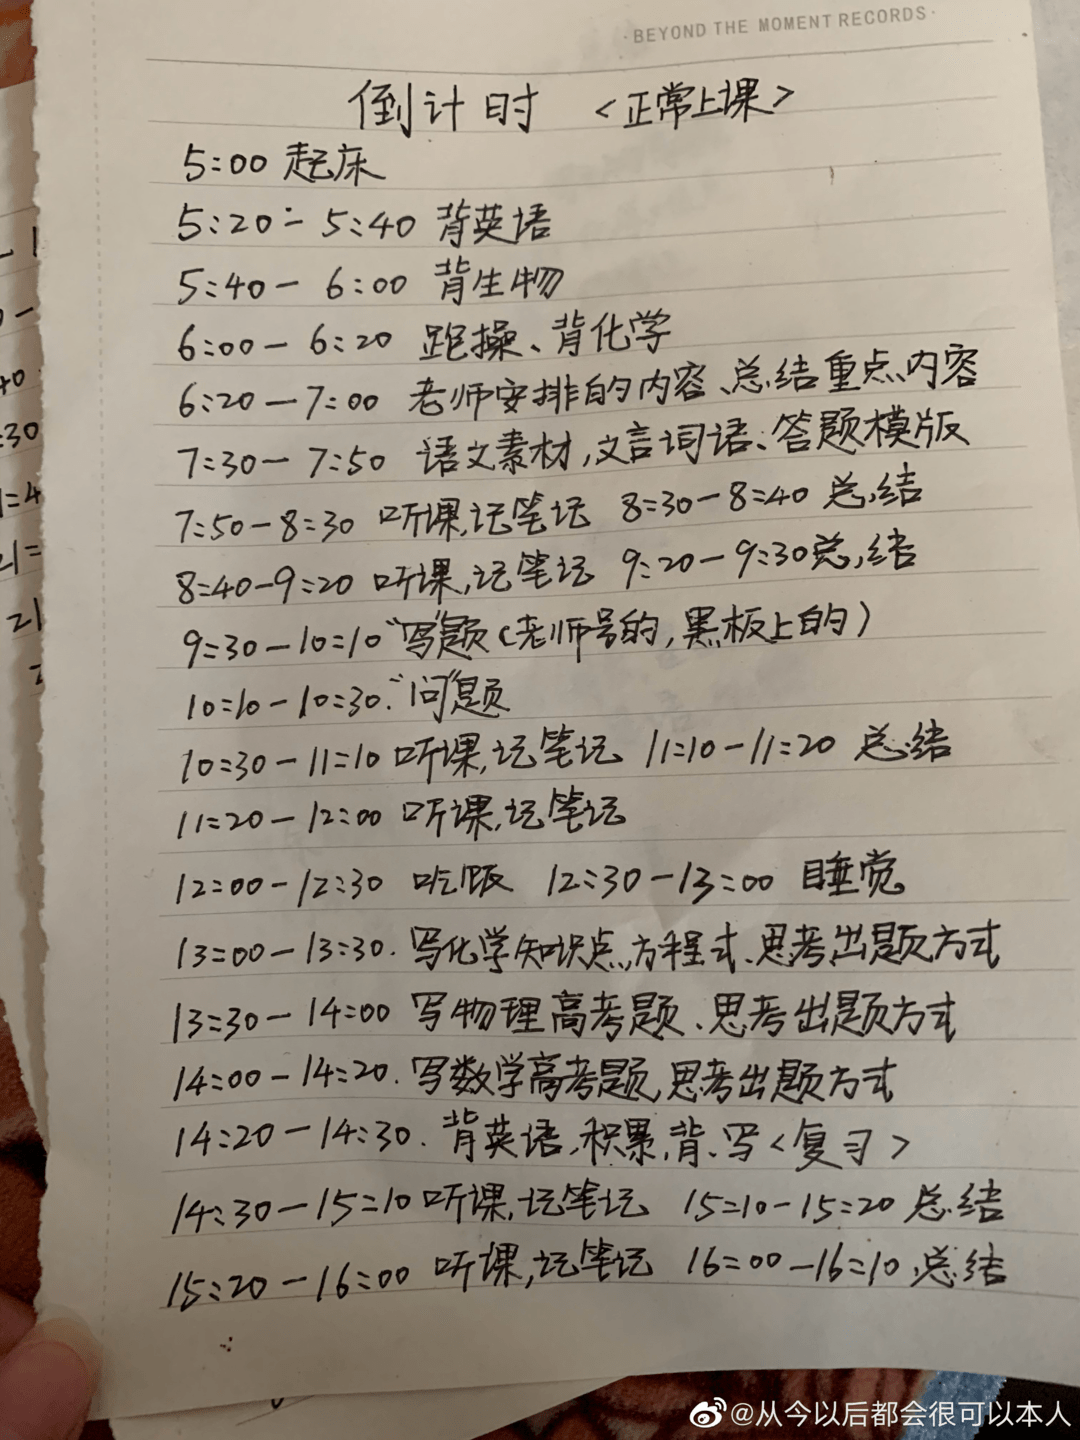 ·BEYOND THE MOMENT RECORDS·
倒计时 <正常上课>
5:00 起床
5:20-5:40 背英语
5:40-6:00 背生物
6:00-6:20 跑操、背化学
6:20-7:00 老师安排的内容、总结重点内容
7:30-7:50 语文素材,文言词语、答题模版
7:50-8:30 听课,记笔记 8:30-8:40 总结
8:40-9:20 听课,记笔记 9:20-9:30总结
9:30-10:10"写"题(老师号的,黑板上的)
10:10-10:30."问"题
10:30-11:10 听课,记笔记 11:10-11:20 总结
11:20-12:00 听课,记笔记
12:00-12:30 吃饭 12:30-13:00 睡觉
13:00-13:30. 写化学知识点,方程式、思考出题方式
13:30-14:00 写物理高考题、思考出题方式
14:00-14:20. 写数学高考题,思考出题方式
14:20-14:30. 背英语,积累,背、写<复习>
14:30-15:10 听课,记笔记 15:10-15:20 总结
15:20-16:00 听课,记笔记 16:00-16:10 总结
@从今以后都会很可以本人